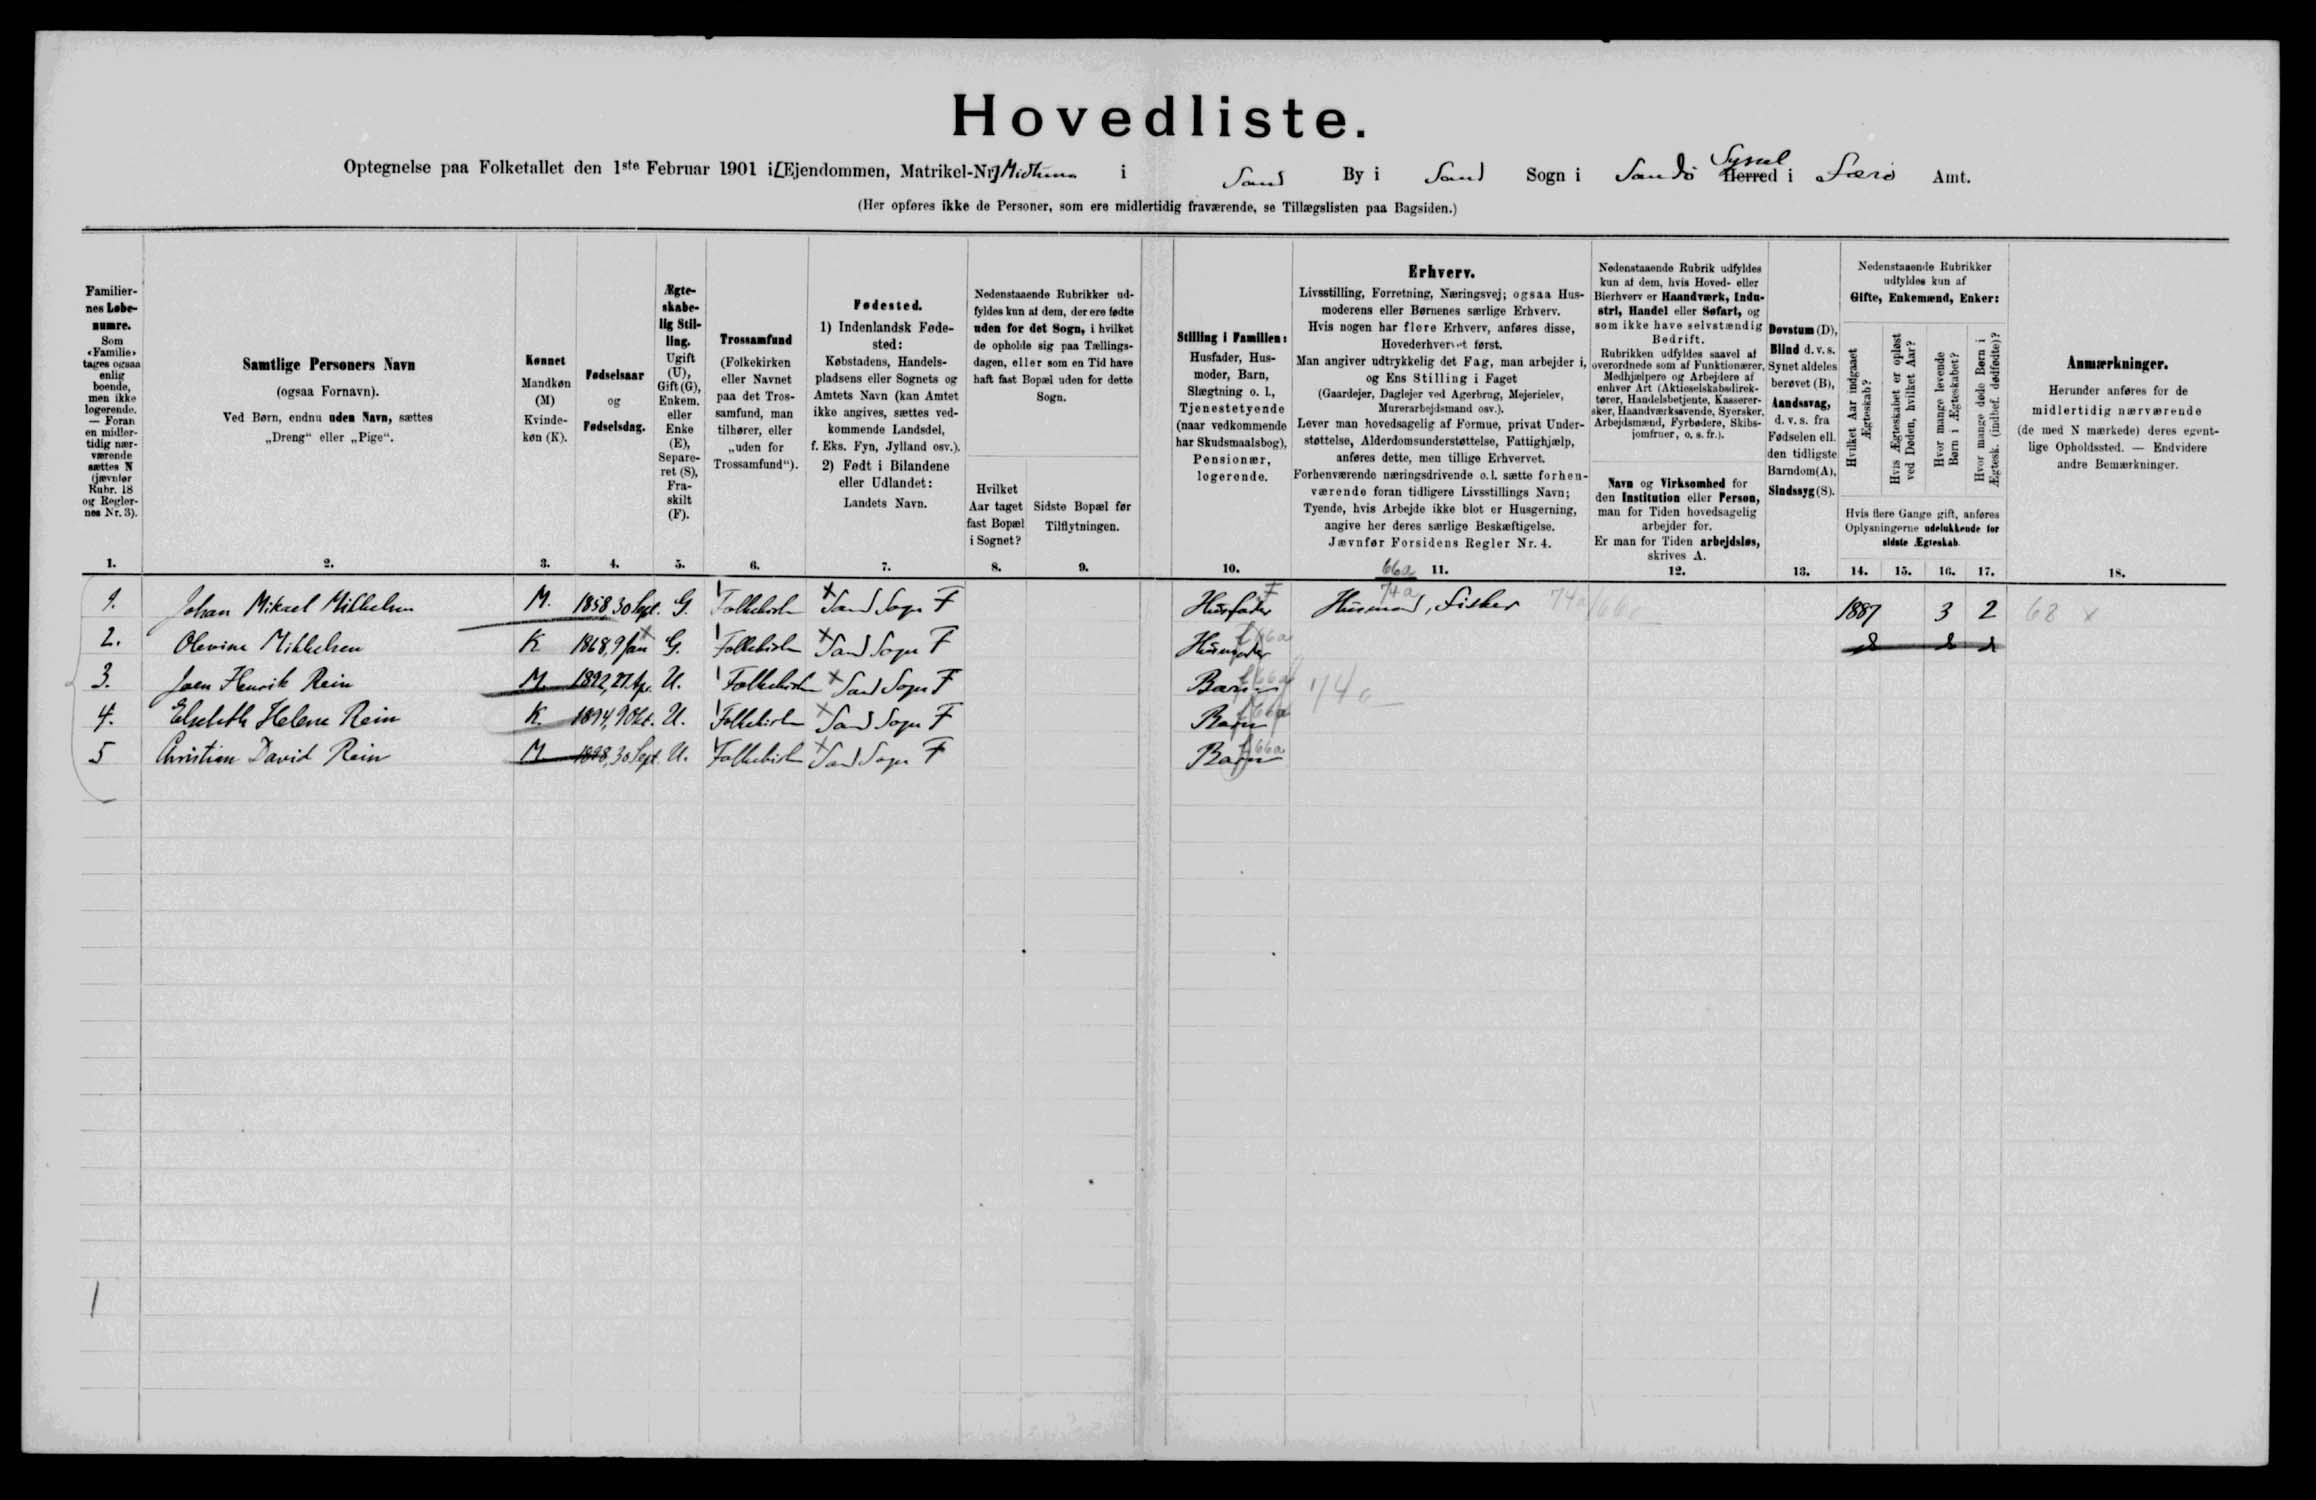 Hovedliste.
Optegnelse paa Folketallet den 1ste Februar 1901 i [Ejendommen, Matrikel-Nr.] i Sand By i Sand Sogn i Sandø Sysel Herred i Færø Amt.
(Her opføres ikke de Personer, som ere midlertidig fraværende, se Tillægslisten paa Bagsiden.)
Familier-
nes Løbe-
numre.
Som
«Familie»
tages ogsaa
enlig
boende,
men ikke
logerende.
— Foran
en midler-
tidig nær-
værende
sættes N
(jævnfør
Rubr. 18
og Regler-
nes Nr. 3).
Samtlige Personers Navn
(ogsaa Fornavn).
Ved Børn, endnu uden Navn, sættes
„Dreng“ eller „Pige“.
Kønnet
Mandkøn
(M)
Kvinde-
køn (K).
Fødselsaar
og
Fødselsdag.
Ægte-
skabe-
lig Stil-
ling.
Ugift
(U),
Gift (G),
Enkem.
eller
Enke
(E),
Separe-
ret (S),
Fra-
skilt
(F).
Trossamfund
(Folkekirken
eller Navnet
paa det Tros-
samfund, man
tilhører, eller
„uden for
Trossamfund“).
Fødested.
1) Indenlandsk Føde-
sted:
Købstadens, Handels-
pladsens eller Sognets og
Amtets Navn (kan Amtet
ikke angives, sættes ved-
kommende Landsdel,
f. Eks. Fyn, Jylland osv.).
2) Født i Bilandene
eller Udlandet:
Landets Navn.
Nedenstaaende Rubrikker ud-
fyldes kun af dem, der ere fødte
uden for det Sogn, i hvilket
de opholde sig paa Tællings-
dagen, eller som en Tid have
haft fast Bopæl uden for dette
Sogn.
Hvilket
Aar taget
fast Bopæl
i Sognet?
Sidste Bopæl før
Tilflytningen.
Stilling i Familien:
Husfader, Hus-
moder, Barn,
Slægtning o. l.,
Tjenestetyende
(naar vedkommende
har Skudsmaalsbog),
Pensionær,
logerende.
Erhverv.
Livsstilling, Forretning, Næringsvej; ogsaa Hus-
moderens eller Børnenes særlige Erhverv.
Hvis nogen har flere Erhverv, anføres disse,
Hovederhvervet først.
Man angiver udtrykkelig det Fag, man arbejder i,
og Ens Stilling i Faget
(Gaardejer, Daglejer ved Agerbrug, Mejerielev,
Murerarbejdsmand osv.).
Lever man hovedsagelig af Formue, privat Under-
støttelse, Alderdomsunderstøttelse, Fattighjælp,
anføres dette, men tillige Erhvervet.
Forhenværende næringsdrivende o. l. sætte forhen-
værende foran tidligere Livsstillings Navn;
Tyende, hvis Arbejde ikke blot er Husgerning,
angive her deres særlige Beskæftigelse.
Jævnfør Forsidens Regler Nr. 4.
Nedenstaaende Rubrik udfyldes
kun af dem, hvis Hoved- eller
Bierhverv er Haandværk, Indu-
stri, Handel eller Søfart, og
som ikke have selvstændig
Bedrift.
Rubrikken udfyldes saavel af
overordnede som af Funktionærer,
Medhjælpere og Arbejdere af
enhver Art (Aktieselskabsdirek-
tører, Handelsbetjente, Kasserer-
sker, Haandværkssvende, Syersker,
Arbejdsmænd, Fyrbødere, Skibs-
jomfruer, o. s. fr.).
Navn og Virksomhed for
den Institution eller Person,
man for Tiden hovedsagelig
arbejder for.
Er man for Tiden arbejdsløs,
skrives A.
Døvstum (D),
Blind d. v. s.
Synet aldeles
berøvet (B),
Aandssvag,
d. v. s. fra
Fødselen ell.
den tidligste
Barndom (A),
Sindssyg (S).
Nedenstaaende Rubrikker
udfyldes kun af
Gifte, Enkemænd, Enker:
Hvilket Aar indgaaet
Ægteskab?
Hvis Ægteskabet er opløst
ved Døden, hvilket Aar?
Hvor mange levende
Børn i Ægteskabet?
Hvor mange døde Børn i
Ægtesk. (indbef. dødfødte)?
Hvis flere Gange gift, anføres
Oplysningerne udelukkende for
sidste Ægteskab.
Anmærkninger.
Herunder anføres for de
midlertidig nærværende
(de med N mærkede) deres egent-
lige Opholdssted. — Endvidere
andre Bemærkninger.
1. 2. 3. 4. 5. 6. 7. 8. 9. 10. 66a 11. 12. 13. 14. 15. 16. 17. 18.
74a
1. Johan Mikael Mikkelsen M. 1858, 30 Sept. G. Folkekirken Sand Sogn F Husfader Husmand, Fisker 74a 66a 1887 3 2 68 x
2. Olevine Mikkelsen K 1868, 9 Jan G. Folkekirken Sand Sogn F Husmoder f 66a
3. Joen Henrik Rein M. 1892, 27 Apr. U. Folkekirken Sand Sogn F Barn f 66a 74a
4. Elsebeth Helene Rein K. 1894, 9 Okt. U. Folkekirken Sand Sogn F Barn f 66a
5 Christian David Rein M 1898, 30 Sept. U. Folkekirken Sand Sogn F Barn f 66a
1